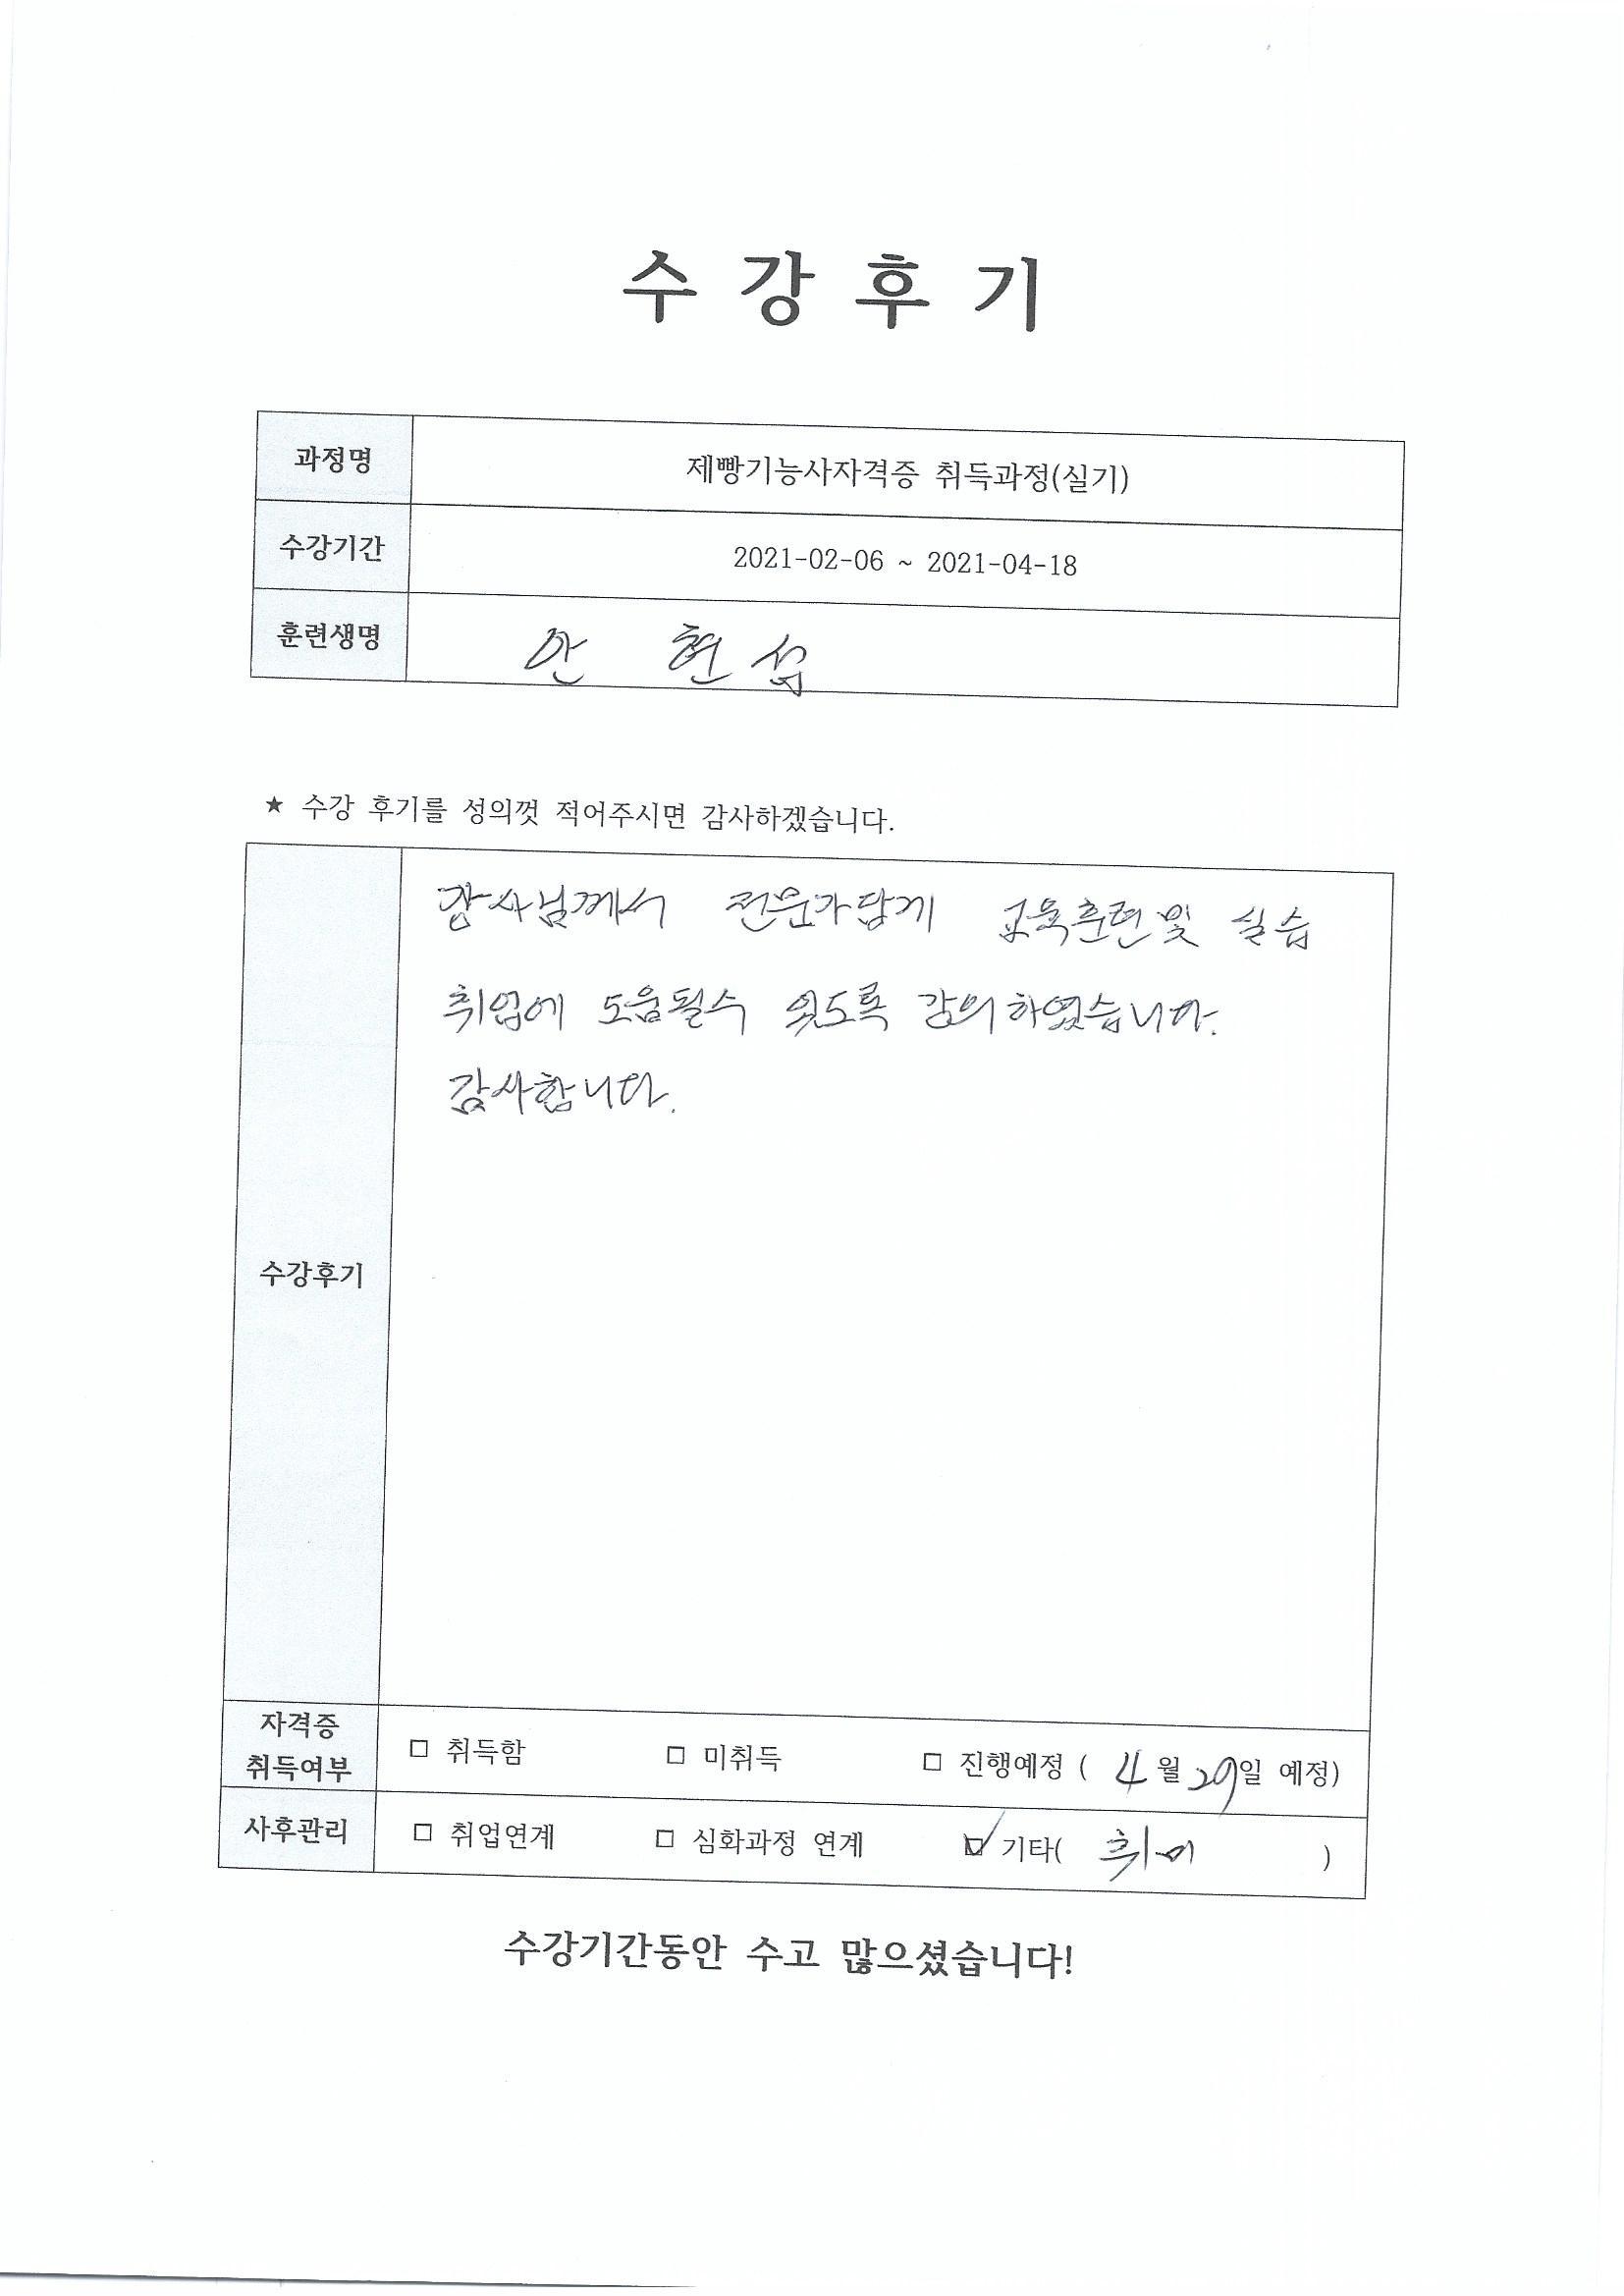 수 강 후 기
과정명 제빵기능사자격증 취득과정(실기)
수강기간 2021-02-06 ~ 2021-04-18
훈련생명 안 현섭
★ 수강 후기를 성의껏 적어주시면 감사하겠습니다.
강사님께서 전문가답게 교육훈련및 실습
취업에 도움될수 있도록 강의하였습니다.
감사합니다.
수강후기
자격증
취득여부 □ 취득함 □ 미취득 □ 진행예정 ( 4 월 29일 예정)
사후관리 □ 취업연계 □ 심화과정 연계 ☑ 기타( 취미 )
수강기간동안 수고 많으셨습니다!